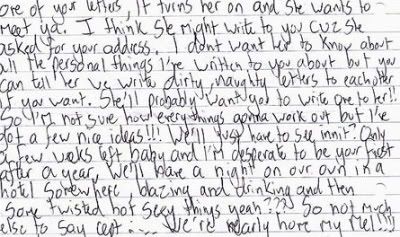 one of your letters, it turns her on and she wants to
meet ya. I think she might write to you cuz she
asked for your address. I dont want her to know about
all the personal things I've written to you about but you
can tell her we write dirty, naughty letters to eachother
if you want. She'll probably want you to write one to her!!
So I'm not sure how everythings gonna work out but I've
got a few nice ideas!!! We'll just have to see innit? Only
a few weeks left baby and I'm desperate to be your first
after a year, we'll have a night on our own in a
hotel somewhere blazing and drinking and then
some twisted hot sexy things yeah??? So not much
else to say cept .... We're nearly home my Mel!!!